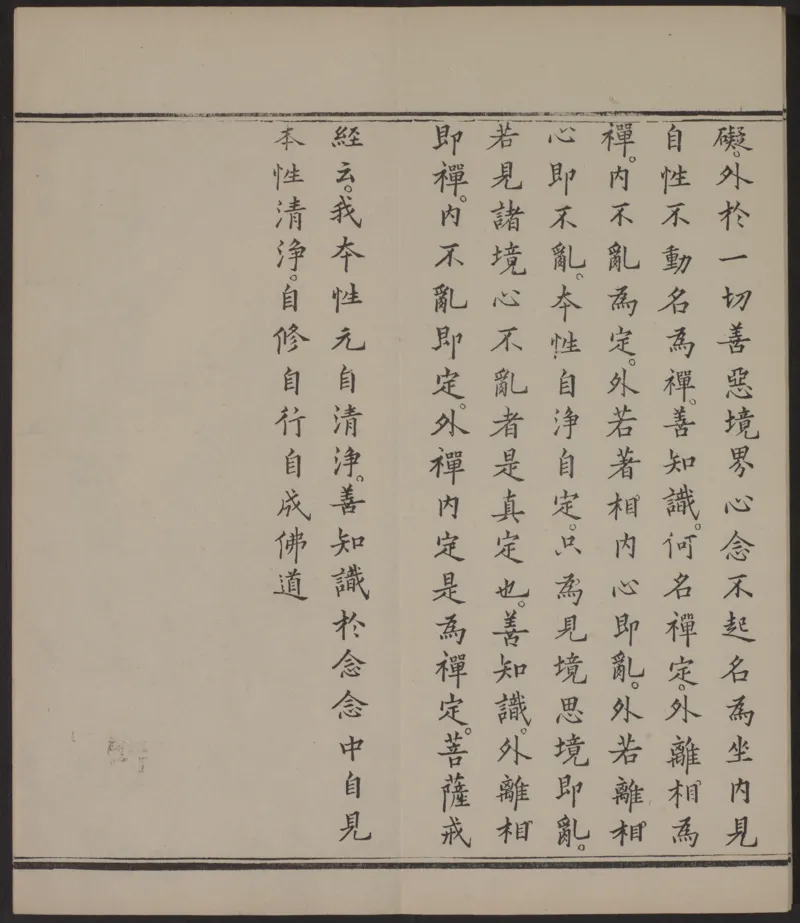 礙。外於一切善惡境界心念不起名為坐內見
自性不動名為禪。善知識。何名禪定。外離相為
禪。內不亂為定。外若著相內心即亂。外若離相
心即不亂。本性自淨自定。只為見境思境即亂。
若見諸境心不亂者是真定也。善知識。外離相
即禪。內不亂即定。外禪內定是為禪定。菩薩戒
經云。我本性元自清淨。善知識於念念中自見
本性清淨。自修自行自成佛道